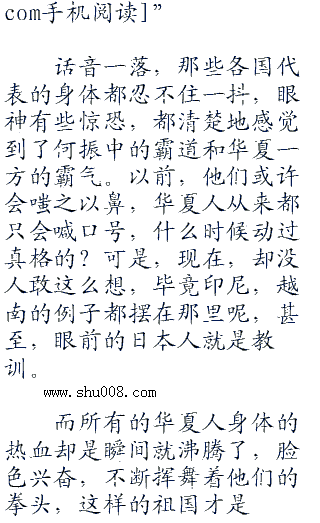 com手机阅读]”
话音一落，那些各国代
表的身体都忍不住一抖，眼
神有些惊恐，都清楚地感觉
到了何振中的霸道和华夏一
方的霸气。以前，他们或许
会嗤之以鼻，华夏人从来都
只会喊口号，什么时候动过
真格的？可是，现在，却没
人敢这么想，毕竟印尼，越
南的例子都摆在那里呢，甚
至，眼前的日本人就是教
训。
www.shu008.com
而所有的华夏人身体的
热血却是瞬间就沸腾了，脸
色兴奋，不断挥舞着他们的
拳头，这样的祖国才是